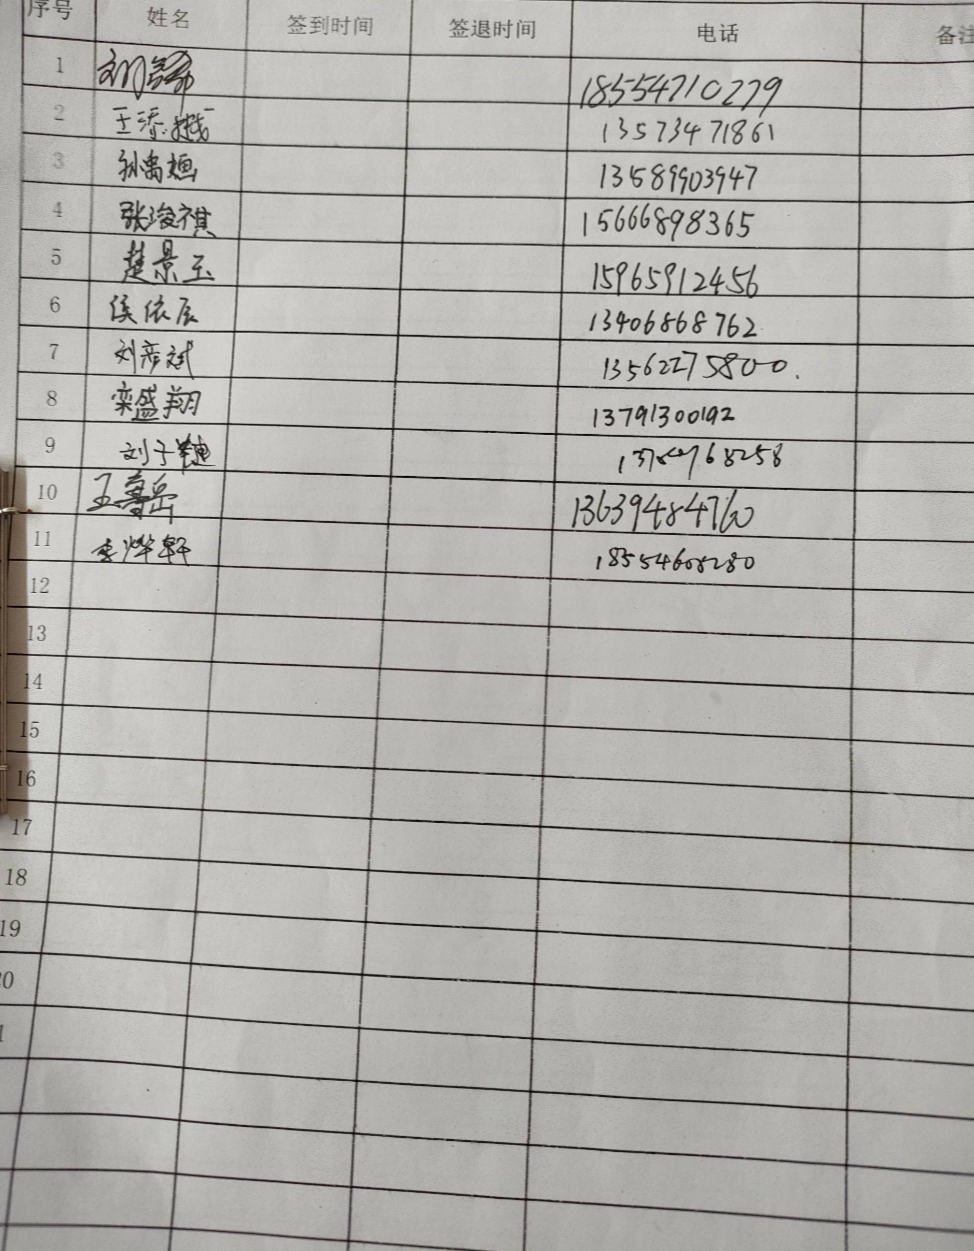 序号 姓名 签到时间 签退时间 电话 备注
1 刘 18554710279
2 王添 13573471861
3 孙禹 13589903947
4 张浚祺 15666898365
5 楚景玉 15965912456
6 侯依辰 13406868762
7 刘彦斌 13562275800.
8 栾盛翔 13791300192
9 刘子
10 王 岳 13639484760
11 李烨轩 18554608280
12
13
14
15
16
17
18
19